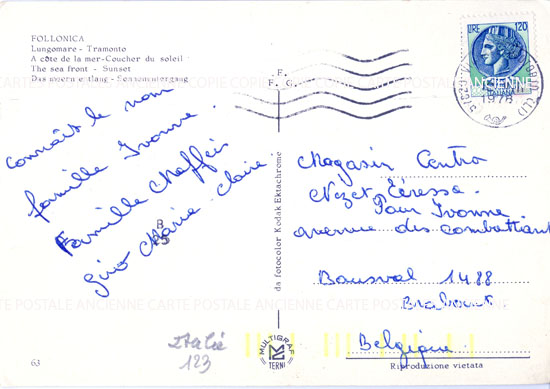 FOLLONICA
Lungomare - Tramonto
A côte de la mer-Coucher du soleil
The sea front - Sunset
Das meern entlang - Sonnenuntergang
connaît le nom
famille Yvonne.
Famille
giro Marie Claire
F.
F. G.
B
5
da fotocolor Kodak Ektachrome
LIRE 120
ITALIANE
1976
Magasin Centro
Nezet Thérèse.
Pour Yvonne.
avenue des combattants
Bousval 1488
Brabant
Belgique
Italie
123
63
MULTIGRAF
TERNI
Riproduzione vietata
CARTE POSTALE ANCIENNE CARTE POSTALE ANCIENNE CARTE POSTALE ANCIENNE